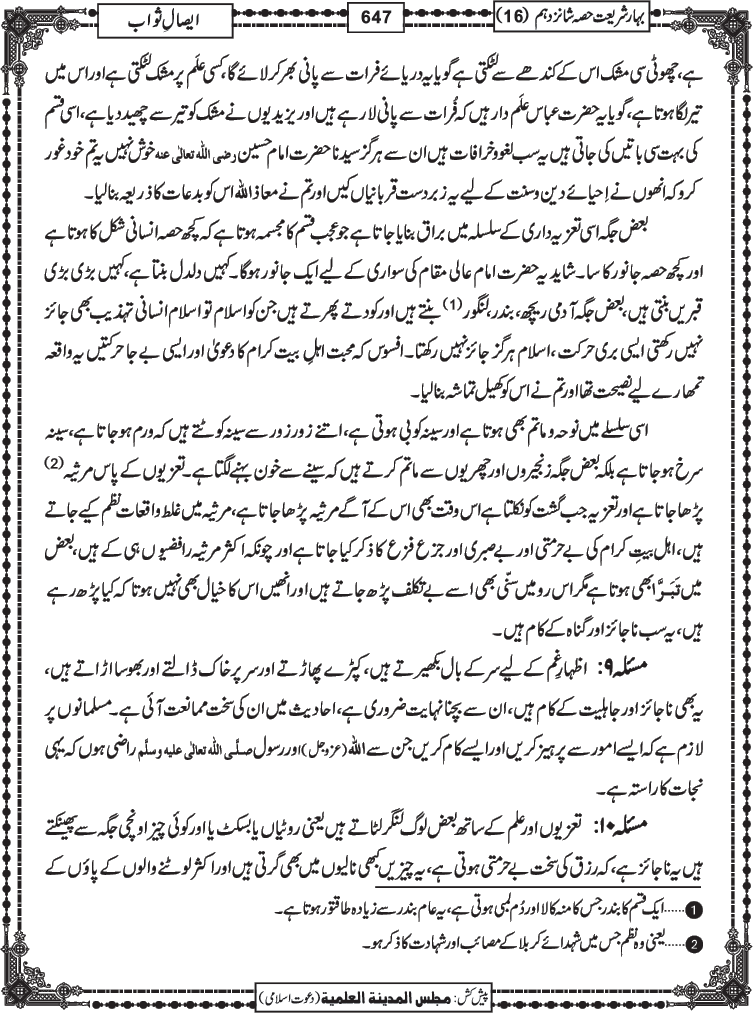 بہارِ شریعت حصہ شانزدہم (16)
647
ایصالِ ثواب
ہے، چھوٹی سی مشک اس کے کندھے سے لٹکتی ہے گویا یہ دریائے فرات سے پانی بھر کر لائے گا، کسی علَم پر مشک لٹکتی ہے اور اس میں
تیر لگا ہوتا ہے، گویا یہ حضرت عباس علَم دار ہیں کہ فُرات سے پانی لا رہے ہیں اور یزیدیوں نے مشک کو تیر سے چھید دیا ہے، اسی قسم
کی بہت سی باتیں کی جاتی ہیں یہ سب لغو و خرافات ہیں ان سے ہرگز سیدنا حضرت امام حسین رضی اللہ تعالٰی عنہ خوش نہیں یہ تم خود غور
کرو کہ انھوں نے اِحیائے دین و سنت کے لیے یہ زبردست قربانیاں کیں اور تم نے معاذاللہ اس کو بدعات کا ذریعہ بنا لیا۔
بعض جگہ اسی تعزیہ داری کے سلسلہ میں براق بنایا جاتا ہے جو عجب قسم کا مجسمہ ہوتا ہے کہ کچھ حصہ انسانی شکل کا ہوتا ہے
اور کچھ حصہ جانور کا سا۔ شاید یہ حضرت امام عالی مقام کی سواری کے لیے ایک جانور ہوگا۔ کہیں دلدل بنتا ہے، کہیں بڑی بڑی
قبریں بنتی ہیں، بعض جگہ آدمی ریچھ، بندر، لنگور (1) بنتے ہیں اور کودتے پھرتے ہیں جن کو اسلام تو اسلام انسانی تہذیب بھی جائز
نہیں رکھتی ایسی بری حرکت، اسلام ہرگز جائز نہیں رکھتا۔ افسوس کہ محبت اہلِ بیت کرام کا دعویٰ اور ایسی بے جا حرکتیں یہ واقعہ
تمھارے لیے نصیحت تھا اور تم نے اس کو کھیل تماشہ بنا لیا۔
اسی سلسلے میں نوحہ و ماتم بھی ہوتا ہے اور سینہ کوبی ہوتی ہے، اتنے زور زور سے سینہ کوٹتے ہیں کہ ورم ہو جاتا ہے، سینہ
سرخ ہو جاتا ہے بلکہ بعض جگہ زنجیروں اور چھریوں سے ماتم کرتے ہیں کہ سینے سے خون بہنے لگتا ہے۔ تعزیوں کے پاس مرثیہ (2)
پڑھا جاتا ہے اور تعزیہ جب گشت کو نکلتا ہے اس وقت بھی اس کے آگے مرثیہ پڑھا جاتا ہے، مرثیہ میں غلط واقعات نظم کیے جاتے
ہیں، اہل بیتِ کرام کی بے حرمتی اور بے صبری اور جزع فزع کا ذکر کیا جاتا ہے اور چونکہ اکثر مرثیہ رافضیوں ہی کے ہیں، بعض
میں تَبَرَّا بھی ہوتا ہے مگر اس رو میں سنّی بھی اسے بے تکلف پڑھ جاتے ہیں اور انھیں اس کا خیال بھی نہیں ہوتا کہ کیا پڑھ رہے
ہیں، یہ سب ناجائز اور گناہ کے کام ہیں۔
مسئلہ ۹: اظہارِ غم کے لیے سر کے بال بکھیرتے ہیں، کپڑے پھاڑتے اور سر پر خاک ڈالتے اور بھوسا اڑاتے ہیں،
یہ بھی ناجائز اور جاہلیت کے کام ہیں، ان سے بچنا نہایت ضروری ہے، احادیث میں ان کی سخت ممانعت آئی ہے۔ مسلمانوں پر
لازم ہے کہ ایسے امور سے پرہیز کریں اور ایسے کام کریں جن سے اللہ (عزوجل) اور رسول صلَّی اللہ تعالٰی علیہ وسلَّم راضی ہوں کہ یہی
نجات کا راستہ ہے۔
مسئلہ ۱۰: تعزیوں اور علم کے ساتھ بعض لوگ لنگر لٹاتے ہیں یعنی روٹیاں یا بسکٹ یا اور کوئی چیز اونچی جگہ سے پھینکتے
ہیں یہ ناجائز ہے، کہ رزق کی سخت بے حرمتی ہوتی ہے، یہ چیزیں کبھی نالیوں میں بھی گرتی ہیں اور اکثر لوٹنے والوں کے پاؤں کے
1 ......ایک قسم کا بندر جس کا منہ کالا اور دُم لمبی ہوتی ہے، یہ عام بندر سے زیادہ طاقتور ہوتا ہے۔
2 ......یعنی وہ نظم جس میں شہدائے کربلا کے مصائب اور شہادت کا ذکر ہو۔
پیش کش: مجلس المدینۃ العلمیۃ (دعوت اسلامی)